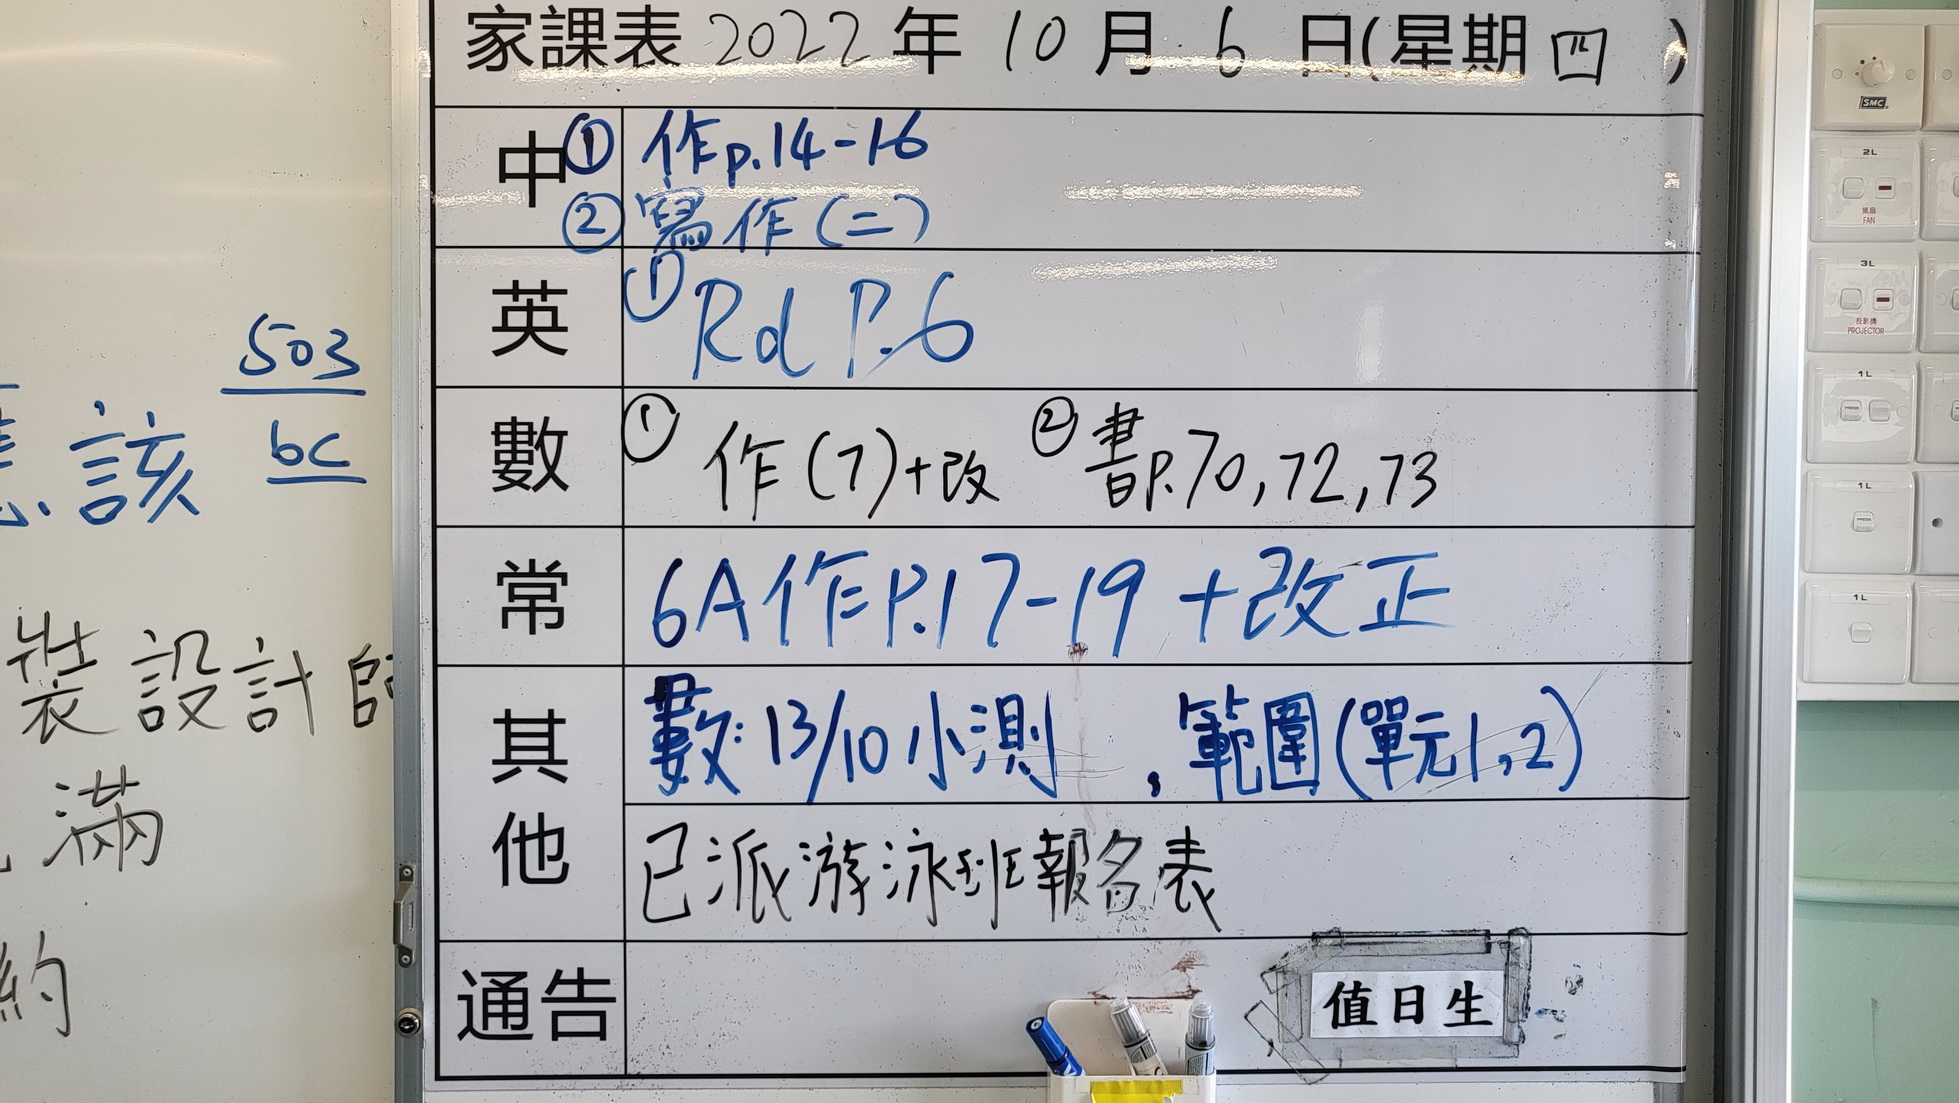 503
bc
該
裝設計師
滿
約
家課表 2022 年 10 月 6 日(星期 四 )
中 ① 作p.14-16
② 寫作(二)
英 ① Rd P.6
數 ① 作(7)+改 ② 書P.70,72,73
常 6A作P.17-19 +改正
其他 數:13/10小測 ,範圍(單元1,2)
已派游泳班報名表
通告
值日生
SMC
2L
風扇
FAN
3L
投影機
PROJECTOR
1L
PRESS
1L
PRESS
1L